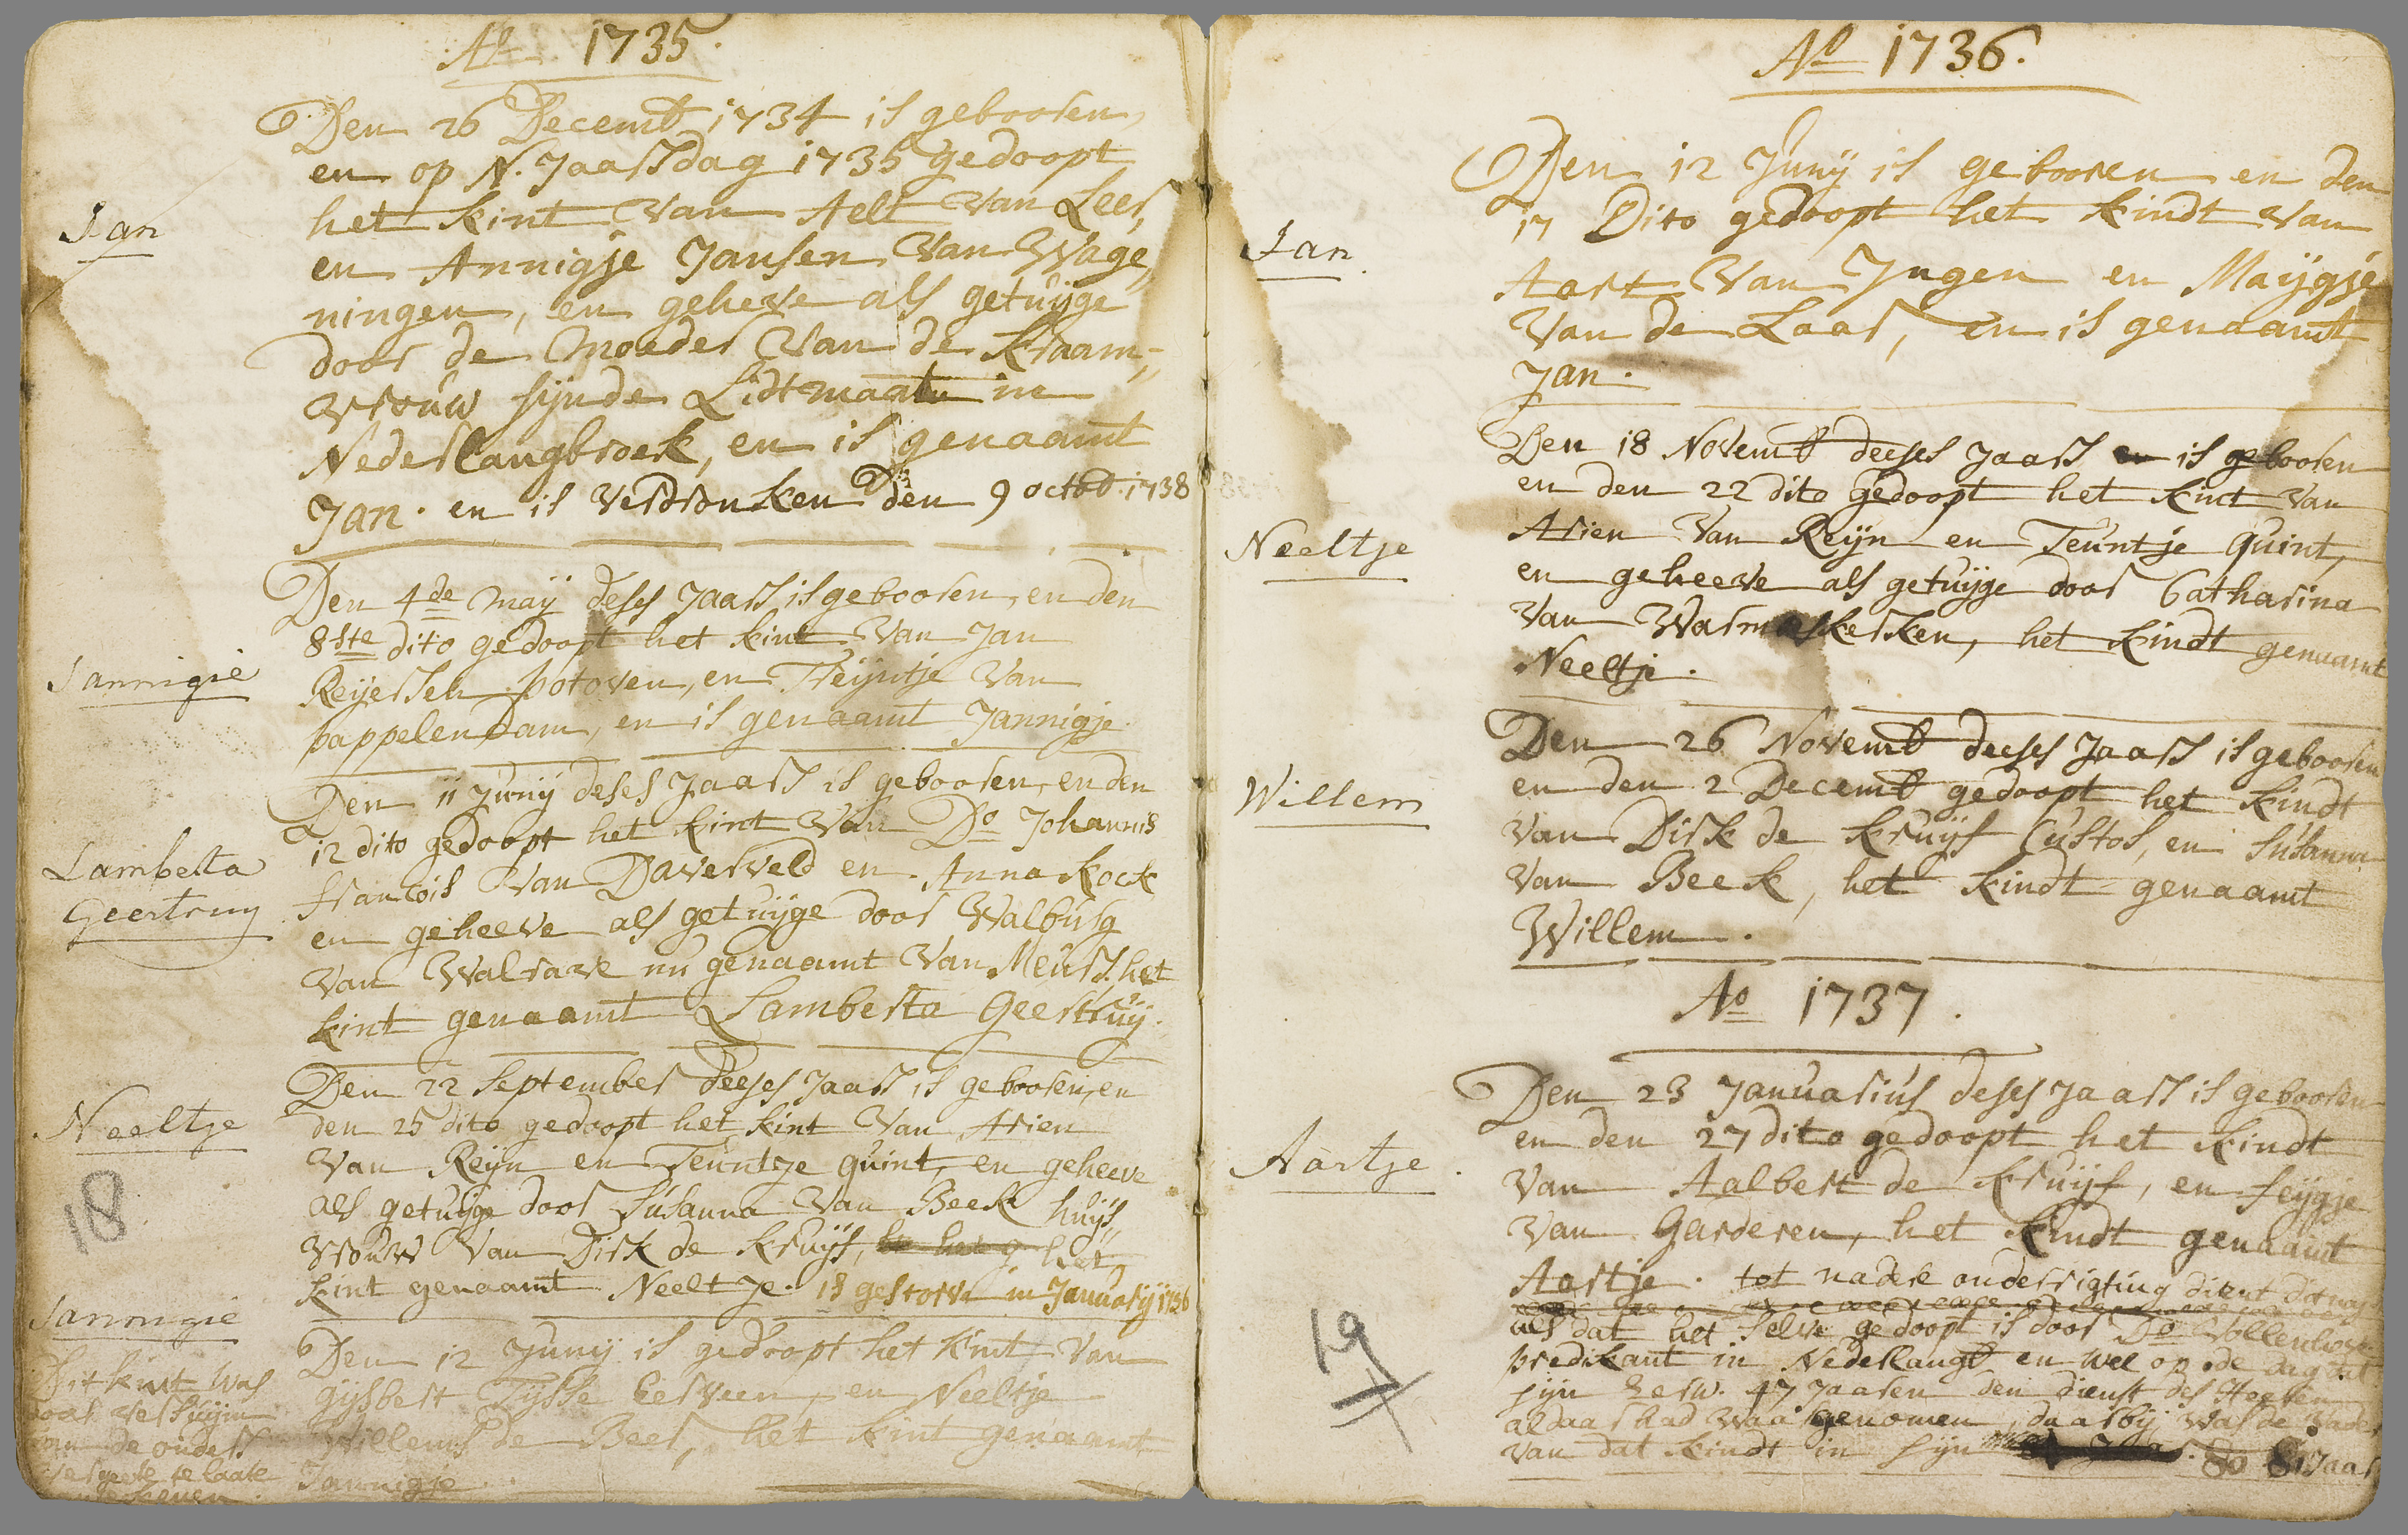 Ao 1735.
Jan
Den 26 Decemb 1734 is gebooren,
en op N. Jaarsdag 1735 gedoopt
het kint van Aelt van Leer,
en Annigje Jansen van Wage„
ningen, en geheve als getuijge
door de moeder van de kraam„
vrouw sijnde Lidtmaate in
Nederlangbroek, en is genaamt
Jan. en is verdronken den 9 octob. 1738
Jannigie
Den 4de maij deses Jaars is gebooren, en den
8ste dito gedoopt het kint van Jan
Reijersen potoven, en Trijntje van
pappelendam, en is genaamt Jannigje.
Lamberta
Geertruy
Den 11 Junij deses Jaars is gebooren, en den
12 dito gedoopt het kint van Do Johannis
francois van Daverveld en Anna Kock
en geheeve als getuijge door Walburg
van Walrave nu genaamt van Meurs. het
kint genaamt Lamberta Geertruij.
Neeltje
Den 22 September deeses Jaars is gebooren, en
den 25 dito gedoopt het kint van Arien
van Reijn en Teuntje quint, en geheeve
als getuijge door Susanna van Beek huijs„
vrouw van Dirk de kruijf, het
kint genaamt Neeltje. is gestorve in Januarij 1736
18
Jannigie
Den 12 Junij is gedoopt het kint van
gijsbert Tijsse Eerveen, en Neeltje
Willems de Beer, het kint genaamt
Jannigje.
Dit kint was
door versuijm
van de ouders
vergeete te laate
Ao 1736.
Jan
Den 12 Junij is gebooren en den
17 Dito gedoopt het kindt van
Aart van Ingen en Maijgje
van de Laar, en is genaamt
Jan.
Neeltje
Den 18 Novemb deeses Jaars en is gebooren
en den 22 dito gedoopt het kint van
Arien van Reijn en Teuntje Quint,
en geheeve als getuijge door Catharina
van Warmaskerken, het kindt genaamt
Neeltje.
Willem
Den 26 Novemb deeses Jaars is gebooren
en den 2 Decemb gedoopt het kindt
van Dirk de kruijf Custos, en Susanna
van Beek, het kindt genaamt
Willem.
Ao 1737.
Aartje.
Den 23 Januarius deses Jaars is gebooren
en den 27 dito gedoopt het kindt
van Aalbert de kruijf, en feijgje
van Garderen, het kindt genaamt
Aartje. tot nader onderrigting dient
als dat het selve gedoopt is door Do Wollenhove
predikant in Nederlangb en wel op de dag dat
sijn Eerw. 47 Jaaren den dienst des Heeren
aldaar had waargenomen, daarbij was de vader
van dat kindt in sijn 80 Jaar
19